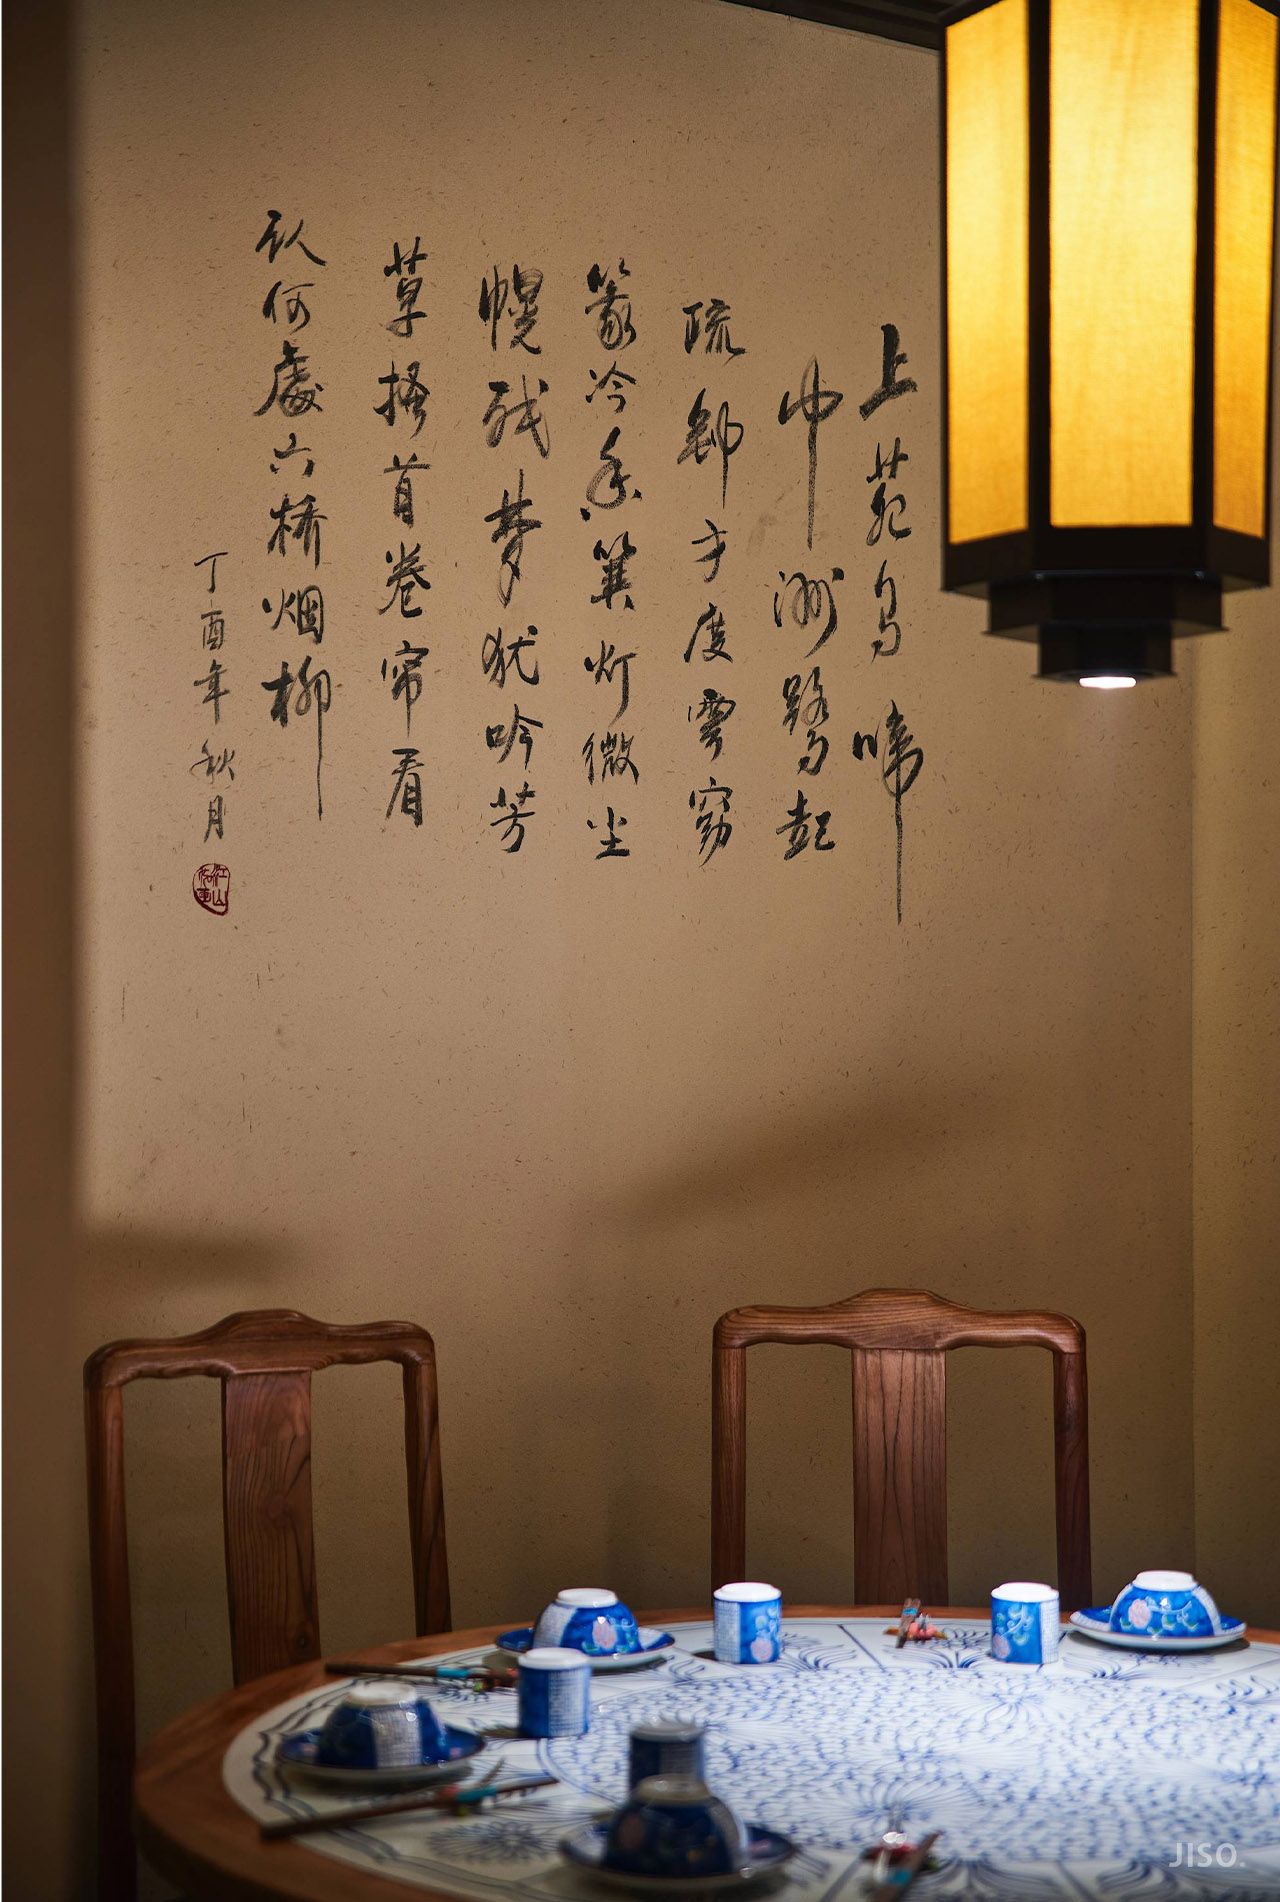 上苑乌啼
中洲鹭起
疏钟才度云窈
篆冷香篝灯微尘
幌残梦犹吟芳
草搔首卷帘看
认何處六桥烟柳
丁酉年秋月
江山如画
JISO